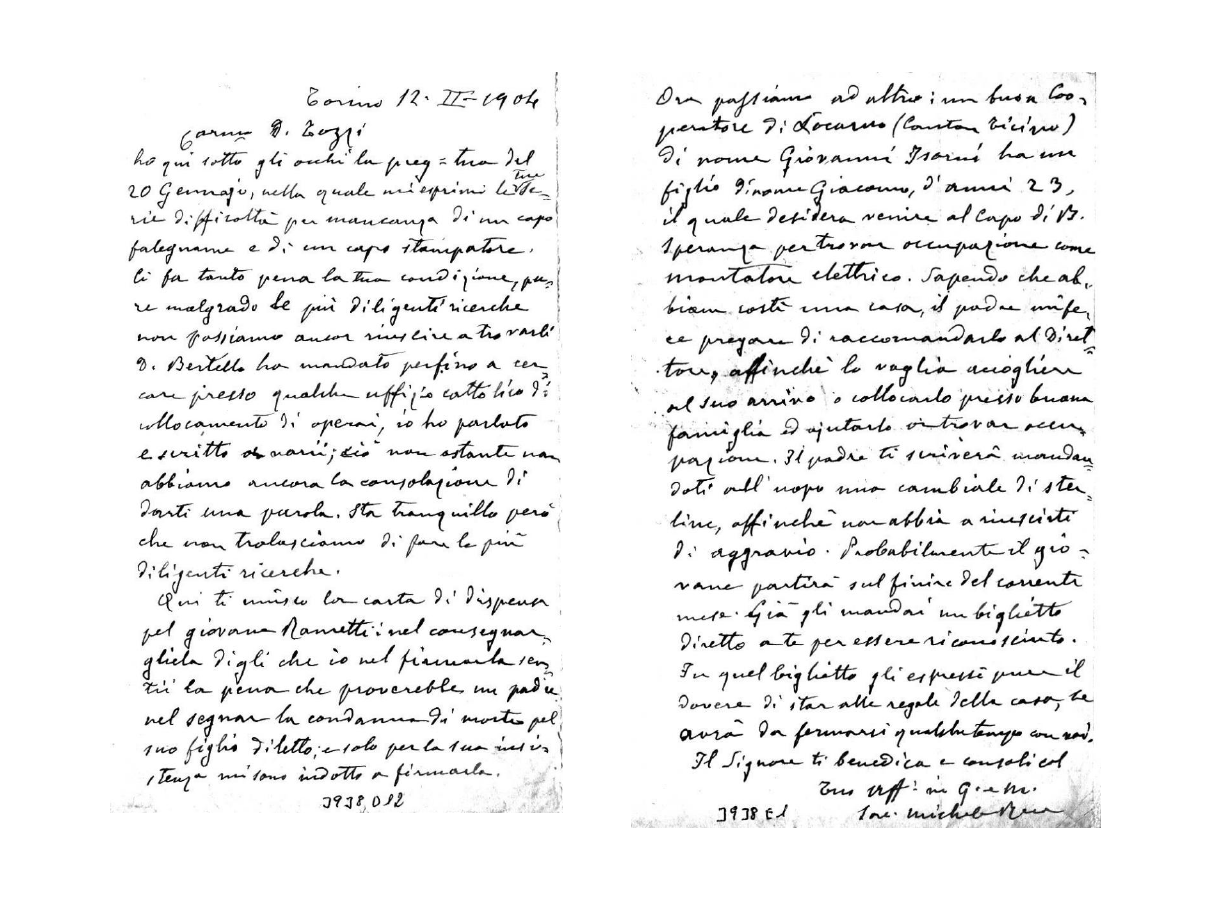 Torino 12. II-1904
Carmo D. Tozzi
ho qui sotto gli occhi la preg=tua del
20 Gennajo, nella quale mi esprimi le tue se=
rie difficoltà per mancanza di un capo
falegname e di un capo stampatore.
Ci fa tanto pena la tua condizione, pu=
re malgrado le più diligenti ricerche
non possiamo ancor riuscire a trovarli
D. Bertello ha mandato perfino a cer=
care presso qualche uffizio cattolico di
collocamento di operai, io ho parlato
e scritto a varii; ciò non ostante non
abbiamo ancora la consolazione di
darti una parola. Sta tranquillo però
che non tralasciamo di fare le più
diligenti ricerche.
Qui ti unisco la carta di dispensa
pel giovane Rametti: nel consegnar=
gliela digli che io nel firmarla sen=
tii la pena che proverebbe un padre
nel segnar la condanna di morte pel
suo figlio diletto; e solo per la sua insi=
stenza mi sono indotto a firmarla.
3938 D12
Ora passiamo ad altro: un buon Coo=
peratore di Locarno (Canton Ticino)
di nome Giovanni Isorni ha un
figlio di nome Giacomo, d'anni 23,
il quale desidera venire al Capo di B.
Speranza per trovar occupazione come
montatore elettrico. Sapendo che ab=
biam costì una casa, il padre mi fe=
ce pregare di raccomandarlo al Diret=
tore, affinchè lo voglia accogliere
al suo arrivo o collocarlo presso buona
famiglia ed ajutarlo a trovar occu=
pazione. Il padre ti scriverà mandan
doti all'uopo una cambiale di ster=
line, affinchè non abbia a riuscirti
di aggravio. Probabilmente il gio=
vane partirà sul finire del corrente
mese. Già gli mandai un biglietto
diretto a te per essere riconosciuto.
In quel biglietto gli espressi pure il
dovere di star alle regole della casa, se
avrà da fermarsi qualche tempo con voi.
Il Signore ti benedica e consoli col
Tuo aff: in G. e M.
Sac. Michele Rua
3938 E1